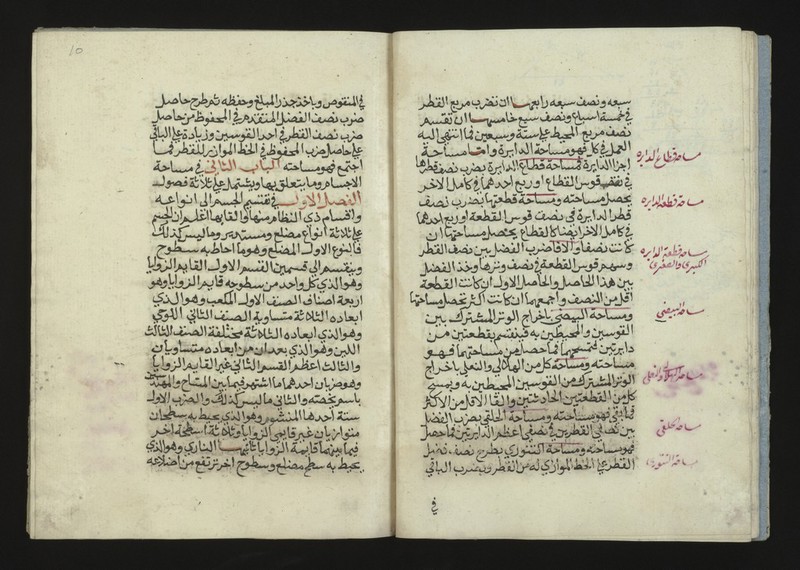 سبعه ونصف سبعه رابعها ان نضرب مربع القطر
في خمسة اسباع ونصف سبع خامسها ان تقسم
نصف مربع المحيط على ستة وسبعين فما انتهى اليه
العمل في كل فهو مساحة الدايرة واما مساحة
اجزا الدايرة فمساحة قطاع الدايرة بضرب نصف قطرها
في نصف قوس القطاع او ربع احدهما في كامل الاخر
يحصل مساحته ومساحة قطعتها بضرب نصف
قطر الدايرة في نصف قوس القطعة او ربع احدهما
في كامل الاخر ايضا كالقطاع يحصل مساحتها ان
كانت نصفا والا فاضرب الفضل بين نصف القطر
وسهم قوس القطعة في نصف وترها وخذ الفضل
بين هذا الحاصل والحاصل الاول ان كانت القطعة
اقل من النصف واجمعهما ان كانت اكثر تحصل مساحتها
ومساحة البيضي باخراج الوتر المشترك بين
القوسين والمحيطين به فينقسم بقطعتين من
دايرتين فتمسحهما فما حصل من مساحتهما فهو
مساحته ومساحة كل من الهلالي والنعلي باخراج
الوتر المشترك من القوسين المحيطين به ويمسح
كل من القطعتين الحادثتين والقا الاقل من الاكثر
فما بقي فهو مساحته ومساحة الحلقي بضرب الفضل
بين نصفي القطرين في نصفي اعظم الدايرتين فما حصل
فهو مساحته ومساحة التنوري بطرح نصف فضل
القطر على الخط الموازي له من القطر وبضرب الباقي
في
مساحة قطاع الدايره
مساحة قطعة الدايره
مساحة قطعة الدايره
الكبرى والصغرى
مساحة البيضي
مساحة الهلالي والنعلي
مساحة الحلقي
مساحة التنوري
10
في المنقوص وياخذ جذر المبلغ وحفظه ثم طرح حاصل
ضرب نصف الفضل المتقدم في المحفوظ من حاصل
ضرب نصف القطر في احد القوسين وزيادة على الباقي
على حاصل ضرب المحفوظ في الخط الموازي للقطر فما
اجتمع فهو مساحته الباب الثاني في مساحة
الاجسام وما يتعلق بها ويشتمل على ثلاثة فصول
الفصل الاول في تقسيم الجسم الى انواعه
واقسام ذي النظام منها والقابها اعلم ان الجسم
على ثلاثة انواع مضلع ومستدير وما ليس كذلك
فالنوع الاول المضلع وهو ما احاط به سطوح
وينقسم الى قسمين القسم الاول القايم الزوايا
وهو الذي كل واحد من سطوحه قايم الزوايا وهو
اربعة اصناف الصنف الاول المكعب وهو الذي
ابعاده الثلاثة متساوية الصنف الثاني اللوحي
وهو الذي ابعاده الثلاثة مختلفة الصنف الثالث
اللبن وهو الذي بعدان من ابعاده متساويان
والثالث اعظم القسم الثاني غير القايم الزوايا
وهو ضربان احدهما ما اشتهر فيما بين المساح والمهندسين
باسم يخصه والثاني ما ليس كذلك والضرب الاول
ستة احدها المنشور وهو الذي يحيط به سطحان
متوازيان غير قايمي الزوايا وثلاثة اسطحة اخر
فيما بينهما قايمة الزوايا ثانيها الناري وهو الذي
يحيط به سطح مضلع وسطوح اخر ترتفع من اضلاعه